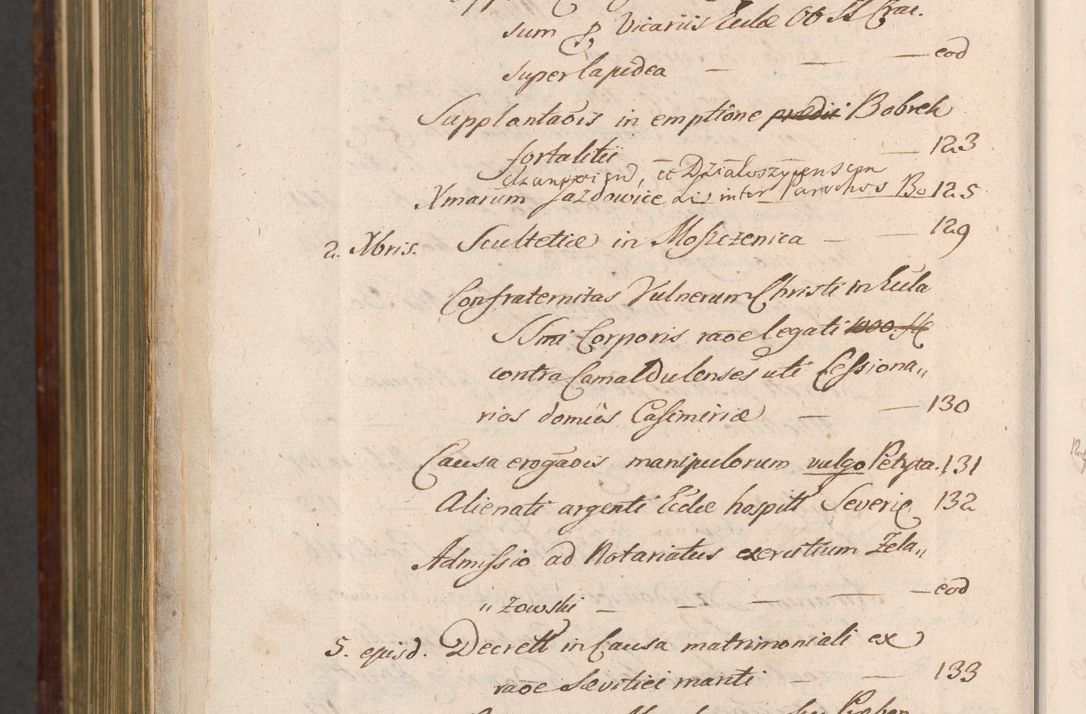 sum & Vicariis Eccłae OO SS Crac.
superlapidea — — — eod
Supplantaōis in emptione praedii Bobrek
fortalitii — 123
et Działoszycensem
Xmarum Jazdowice inter Parochos Bo 125
2. Xbris. Scultetiae in Moszczenica — — 129
Confraternitas Vulnerum Christi in Eccla
SSmi Corporis raōe legati 1000 fl
contra Camaldulenses uti Cessiona„
rios domūs Casimiriae — — 130
Causa erogaōis manipulorum vulgo Petyta. 131
Alienati argenti Eccłae hospitł Severiae 132
Admissio ad Notariatus exercitium Zela„
„zowski — — — eod
5. ejusd. Decretł in Causa matrimoniali ex
raōe Sevitiei mariti — — 133